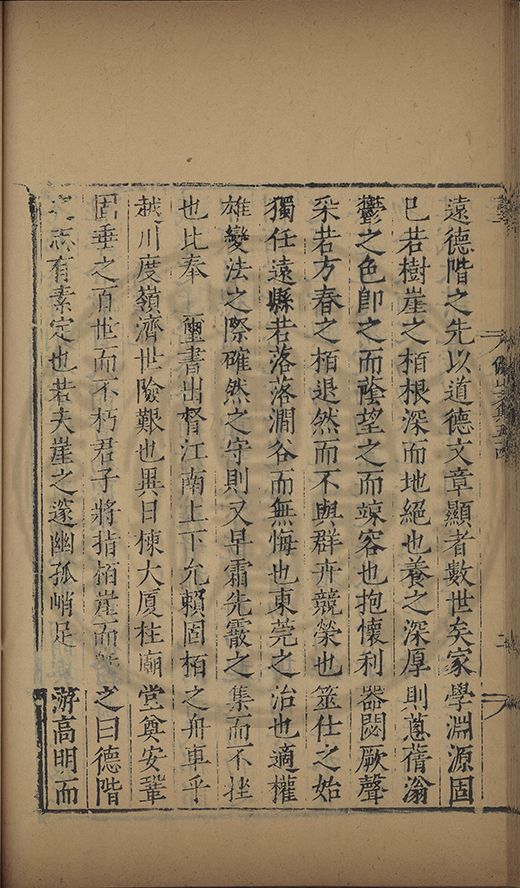 遠德階之先以道德文章顯者數世矣家學淵源固
已若樹崖之栢根深而地絕也養之深厚則蔥蒨滃
鬱之色即之而蔭望之而竦容也抱懷利器閟厥聲
采若方春之栢退然而不與群卉競榮也筮仕之始
獨任遠縣若落落澗谷而無悔也東莞之治也適權
雄變法之際確然之守則又早霜先霰之集而不挫
也比奉 璽書出督江南上下允賴固栢之舟車乎
越川度嶺濟世險艱也異日棟大厦柱廟堂奠安鞏
固垂之百世而不朽君子將指栢崖而 之曰德階
之志有素定也若夫崖之邃幽孤峭足 游高明而